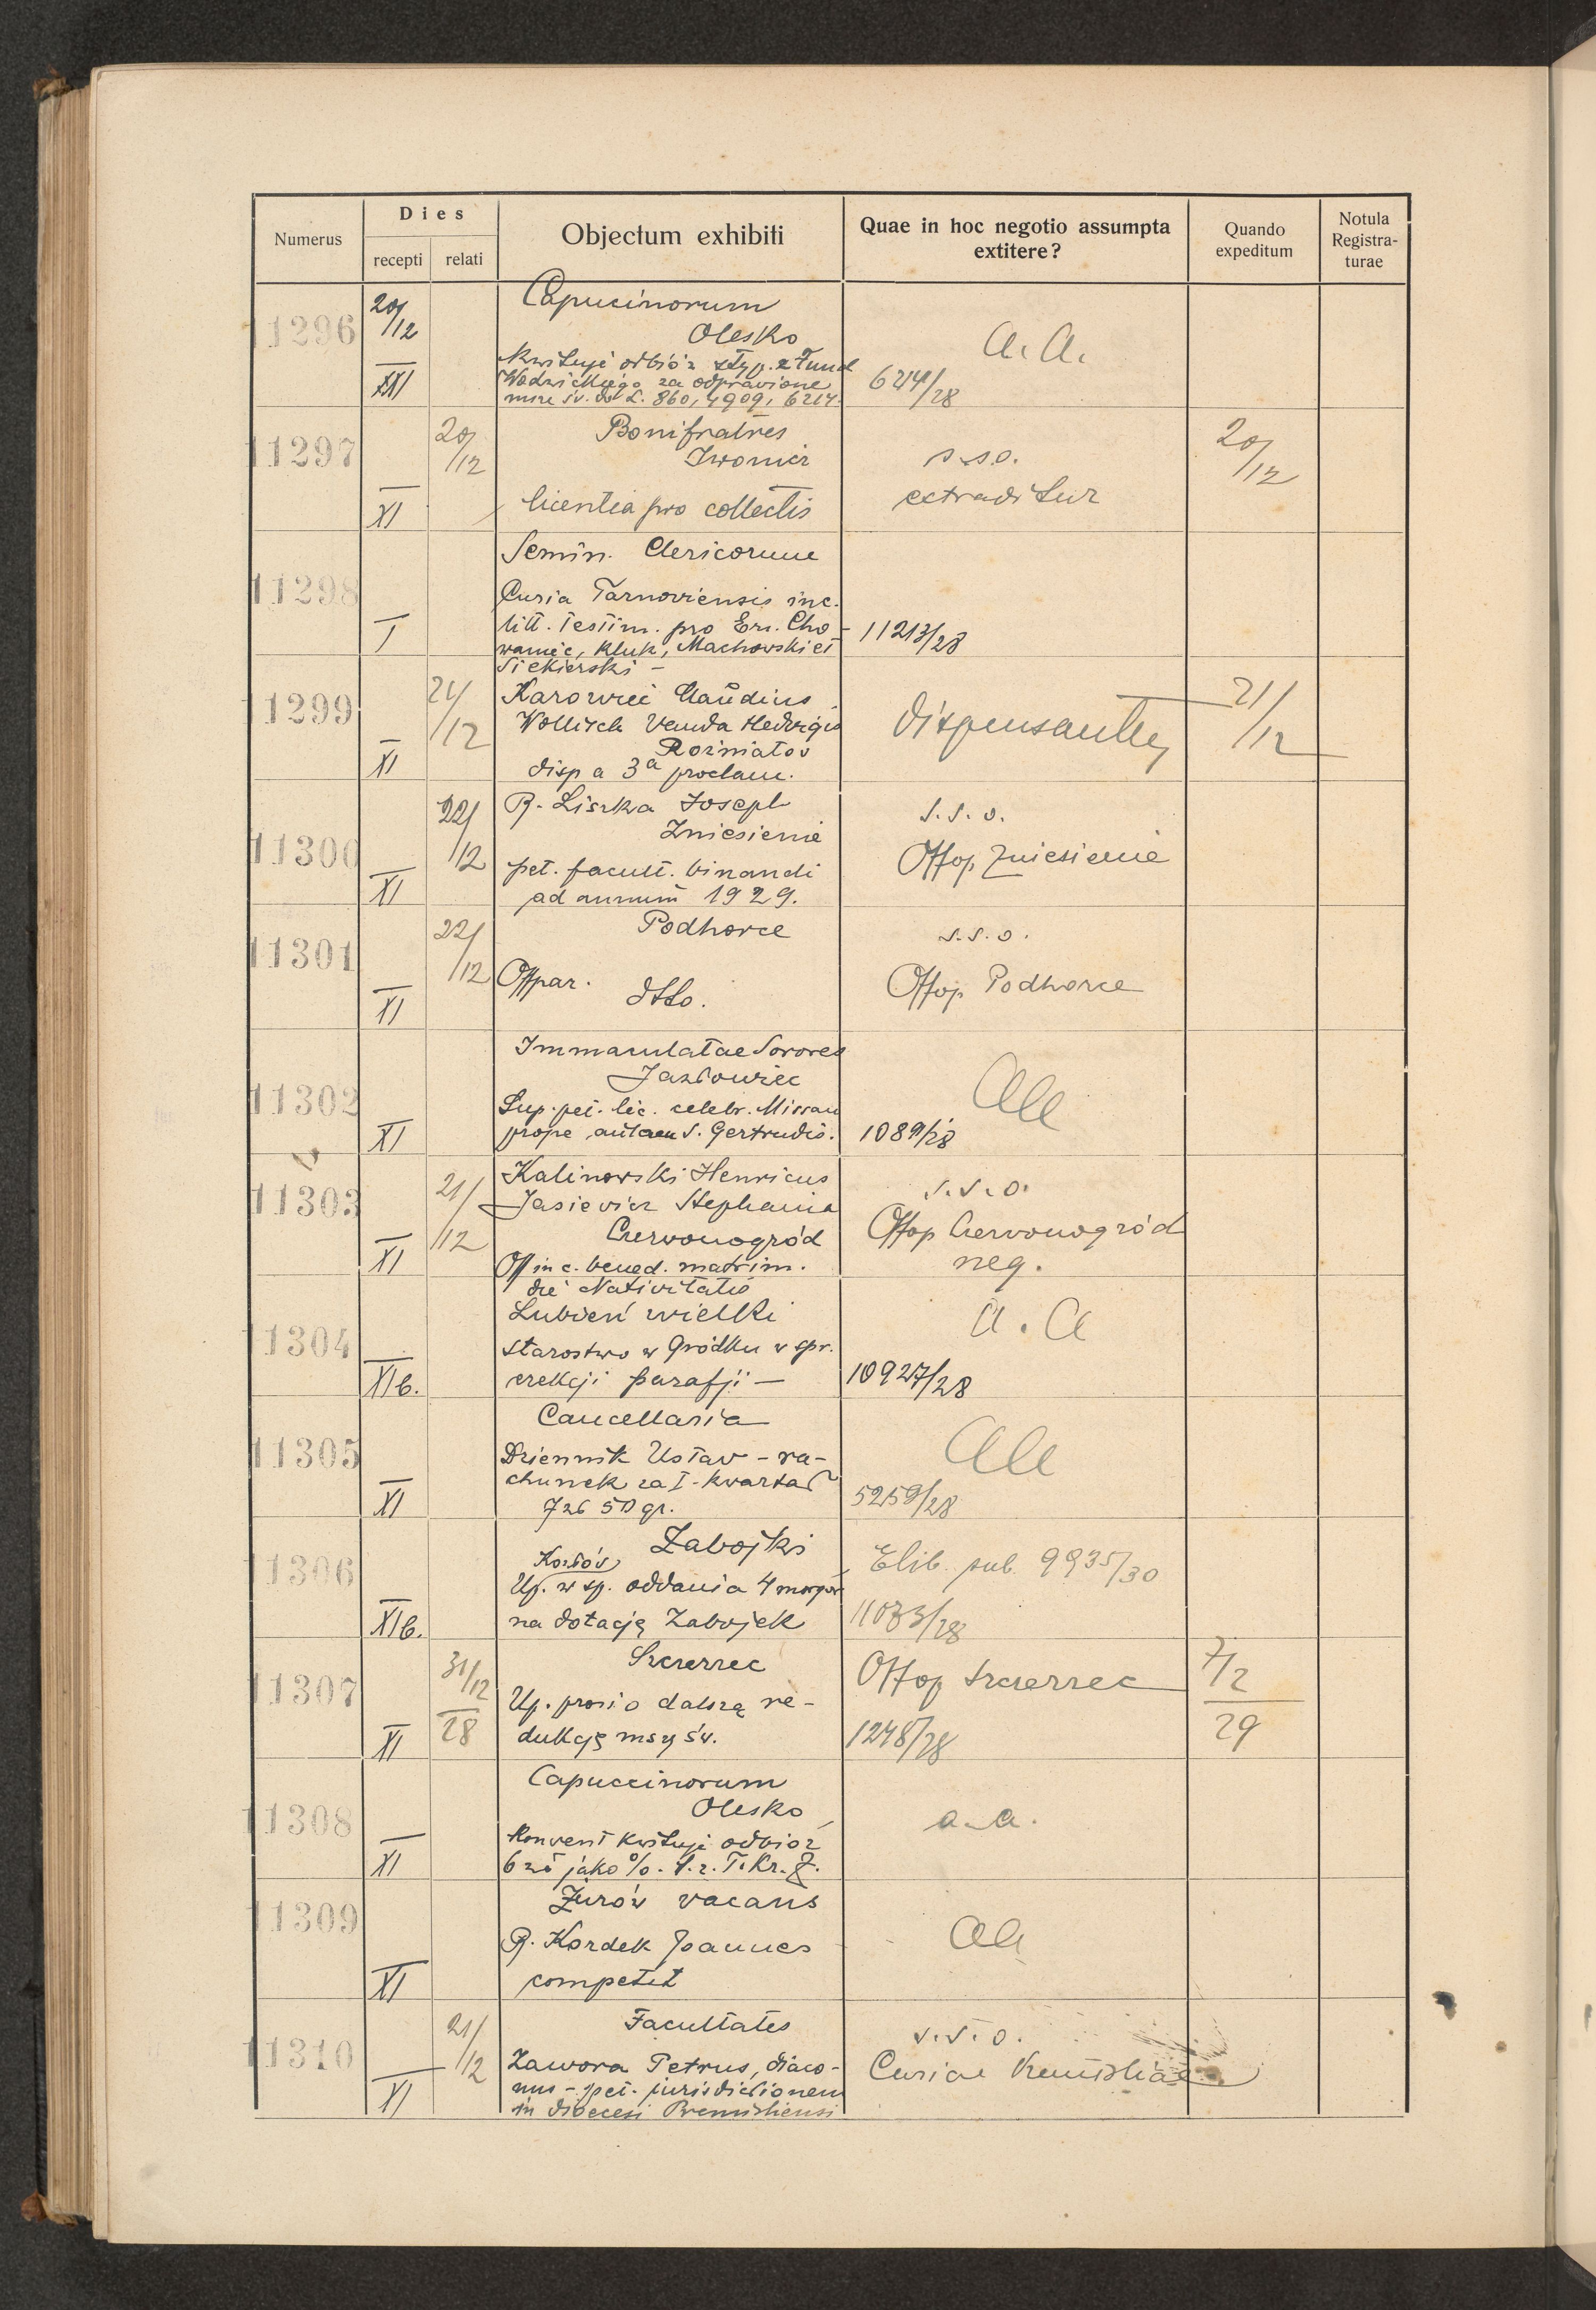 Numerus
Dies
recepti
relati
Objectum exhibiti
Quae in hoc negotio assumpta
extitere?
Quando
expeditum
Notula
Registra-
turae
11296
20/12
XXI
Capucinorum
Olesko
Kwituje odbiór styp. z Fund
Wodzickiego za odprawione
msze św. do L. 860, 4909, 6214.
a. a.
6214/28
11297
XI
20/12
Bonifratres
Iwonicz
licentia pro collectis
s.s.o.
extraditur
20/12
11298
I
Semin. Clericorum
Curia Tarnoviensis inc.
litt. testim. pro Em. Cho-
waniec, Kluk, Machowski et
Siekierski -
11213/28
11299
XI
21/12
Karowiec Claudius
Wollisch Vanda Hedvigis
Rożniatow
disp a 3a proclam.
Dispensantur
21/12
11300
XI
22/12
R. Liszka Joseph
Zniesienie
pet. facult. binandi
ad annum 1929.
s.s.o.
Offop Zniesienie
11301
XI
22/12
Podhorce
Offpar. dtto.
s.s.o.
Offop Podhorce
11302
XI
Immaculatae Sorores
Jazłowiec
Sup. pet. lic. celebr. Missam
prope S. Gertrudis.
aa
1089/28
11303
XI
21/12
Kalinowski Henricus
Jasiewicz Stephania
Czerwonogród
Off in c. bened. matrim.
die Nativitatis
s.s.o.
Offop Czerwonogród
neg.
11304
XIb.
Lubień wielki
Starostwo w Gródku w spr.
erekcji parafji —
a. a
10927/28
11305
XI
Cancellaria
Dziennik Ustaw - ra-
chunek za I. kwartał
7 zł 50 gr.
aa
5259/28
11306
XIb.
Zabojki
Kozłów
Up. w sp. oddania 4 morgów
na dotację Zabojek
Elib. sub. 9935/30
11073/28
11307
XI
31/12
28
Szczerzec
Up. prosi o dalszą re-
dukcję mszy św.
Offop Szczerzec
1248/28
7/2
29
11308
XI
Capuccinorum
Olesko
Konvent kwituje odbiór
6 zł jako %. T. Kr. Z.
a.a.
11309
XI
Żurów vacans
R. Kordek Joannes
competit
aa
11310
XI
21/12
Facultates
Zawora Petrus, diaco-
nus - pet. jurisdictionem
in dioecesi Premisliensi
s.s.o.
Curiae Premisliae